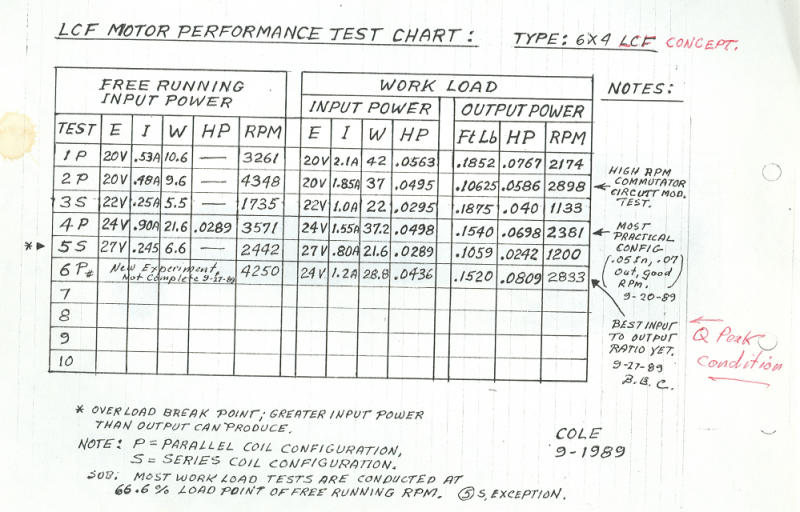 LCF MOTOR PERFORMANCE TEST CHART: TYPE: 6X4 LCF CONCEPT.
FREE RUNNING INPUT POWER WORK LOAD NOTES:
INPUT POWER OUTPUT POWER
TEST E I W HP RPM E I W HP Ft Lb HP RPM
1 P 20V .53A 10.6 — 3261 20V 2.1A 42 .0563 .1852 .0767 2174
2 P 20V .48A 9.6 — 4348 20V 1.85A 37 .0495 .10625 .0586 2898
3 S 22V .25A 5.5 — 1735 22V 1.0A 22 .0295 .1875 .040 1133
4 P 24V .90A 21.6 .0289 3571 24V 1.55A 37.2 .0498 .1540 .0698 2381
* 5 S 27V .245 6.6 — 2442 27V .80A 21.6 .0289 .1059 .0242 1200
6 P# New Experiment, Not Complete 9-27-89 4250 24V 1.2A 28.8 .0436 .1520 .0809 2833
7
8
9
10
HIGH RPM
COMMUTATOR
CIRCUIT MOD.
TEST.
MOST
PRACTICAL
CONFIG
(.05 In, .07
Out, good
RPM.)
9-20-89
BEST INPUT
TO OUTPUT
RATIO YET.
9-27-89
B.B.C.
Q Peak
Condition
* OVERLOAD BREAK POINT; GREATER INPUT POWER
THAN OUTPUT CAN PRODUCE.
NOTE: P = PARALLEL COIL CONFIGURATION,
S = SERIES COIL CONFIGURATION.
SUB: MOST WORK LOAD TESTS ARE CONDUCTED AT
66.6% LOAD POINT OF FREE RUNNING RPM. 5 S, EXCEPTION.
COLE
9-1989